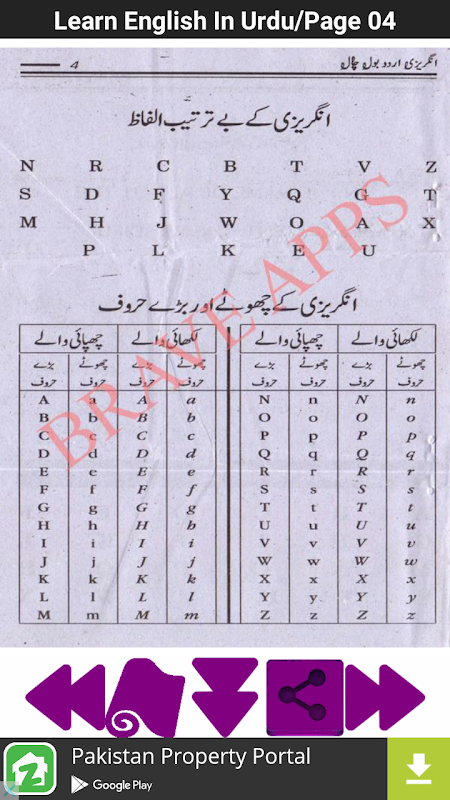 Learn English In Urdu/Page 04
انگریزی اردو بول چال 4
انگریزی کے بے ترتیب الفاظ
N R C B T V Z
S D F Y Q G T
M H J W O A X
P L K E U
انگریزی کے چھوٹے اور بڑے حروف
لکھائی والے چھپائی والے لکھائی والے چھپائی والے
چھوٹے بڑے چھوٹے بڑے چھوٹے بڑے چھوٹے بڑے
حروف حروف حروف حروف حروف حروف حروف حروف
A a A a N n N n
B b B b O o O o
C c C c P p P p
D d D d Q q Q q
E e E e R r R r
F f F f S s S s
G g G g T t T t
H h H h U u U u
I i I i V v V v
J j J j W w W w
K k K k X x X x
L l L l Y y Y y
M m M m Z z Z z
BRAVE APPS
Pakistan Property Portal
Google Play